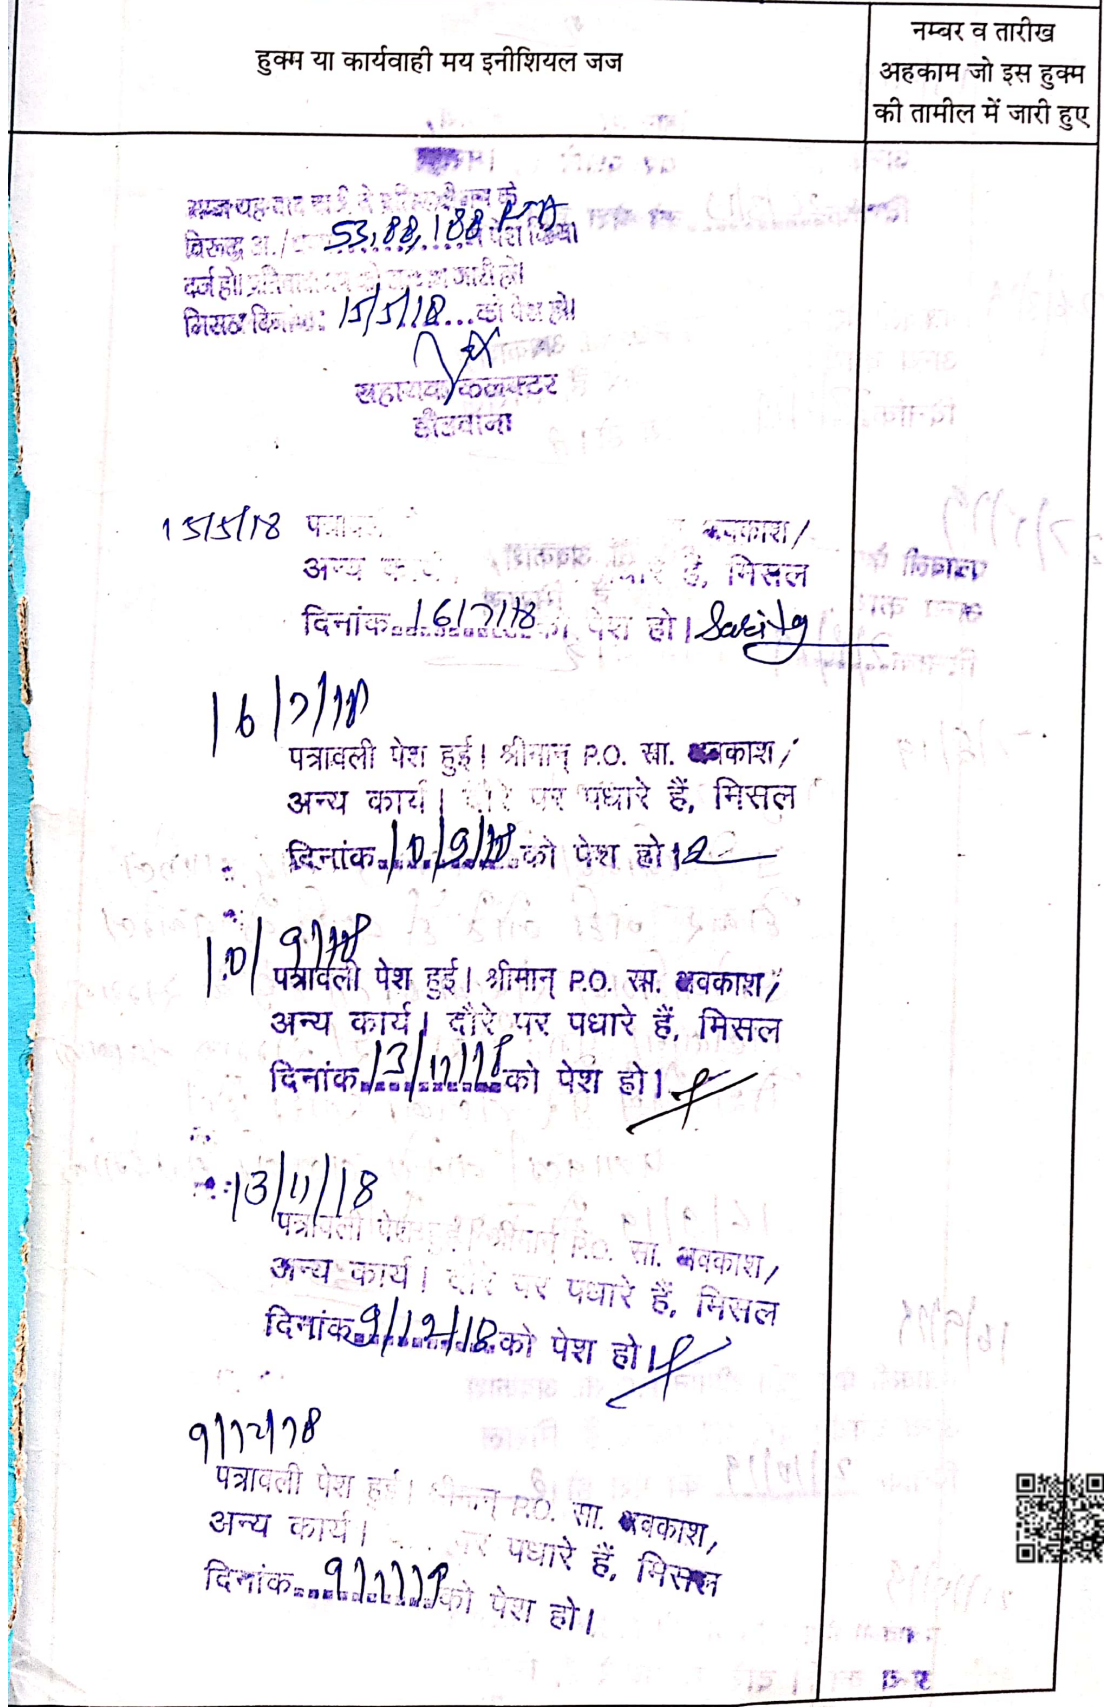 हुक्म या कार्यवाही मय इनीशियल जज
नम्बर व तारीख
अहकाम जो इस हुक्म
की तामील में जारी हुए
विरूद्ध अ./ 53, 88, 188 RTA पेश किया
दर्ज हो। जारी हो।
मिसल दिनांक 15/5/18 को पेश हो।
सहायक कलक्टर
डीडवाना
15/5/18 पत्रावली अवकाश/
अन्य कार्य पधारे हैं, मिसल
दिनांक 16/7/18 को पेश हो।
16/7/18
पत्रावली पेश हुई। श्रीमान् P.O. सा. अवकाश/
अन्य कार्य। दौरे पर पधारे हैं, मिसल
दिनांक 10/9/18 को पेश हो।
10/9/18
पत्रावली पेश हुई। श्रीमान् P.O. सा. अवकाश/
अन्य कार्य। दौरे पर पधारे हैं, मिसल
दिनांक 13/11/18 को पेश हो।
13/11/18
पत्रावली पेश हुई। श्रीमान् P.O. सा. अवकाश/
अन्य कार्य। दौरे पर पधारे हैं, मिसल
दिनांक 9/12/18 को पेश हो।
9/12/18
पत्रावली पेश हुई। श्रीमान् P.O. सा. अवकाश,
अन्य कार्य। पर पधारे हैं, मिसल
दिनांक को पेश हो।